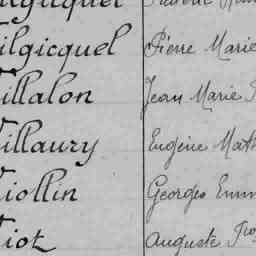 ilgicquel Pierre Marie
Tillalon Jean Marie
Tillaury Eugène Math
Tiollin Georges Emm
Tiot Auguste